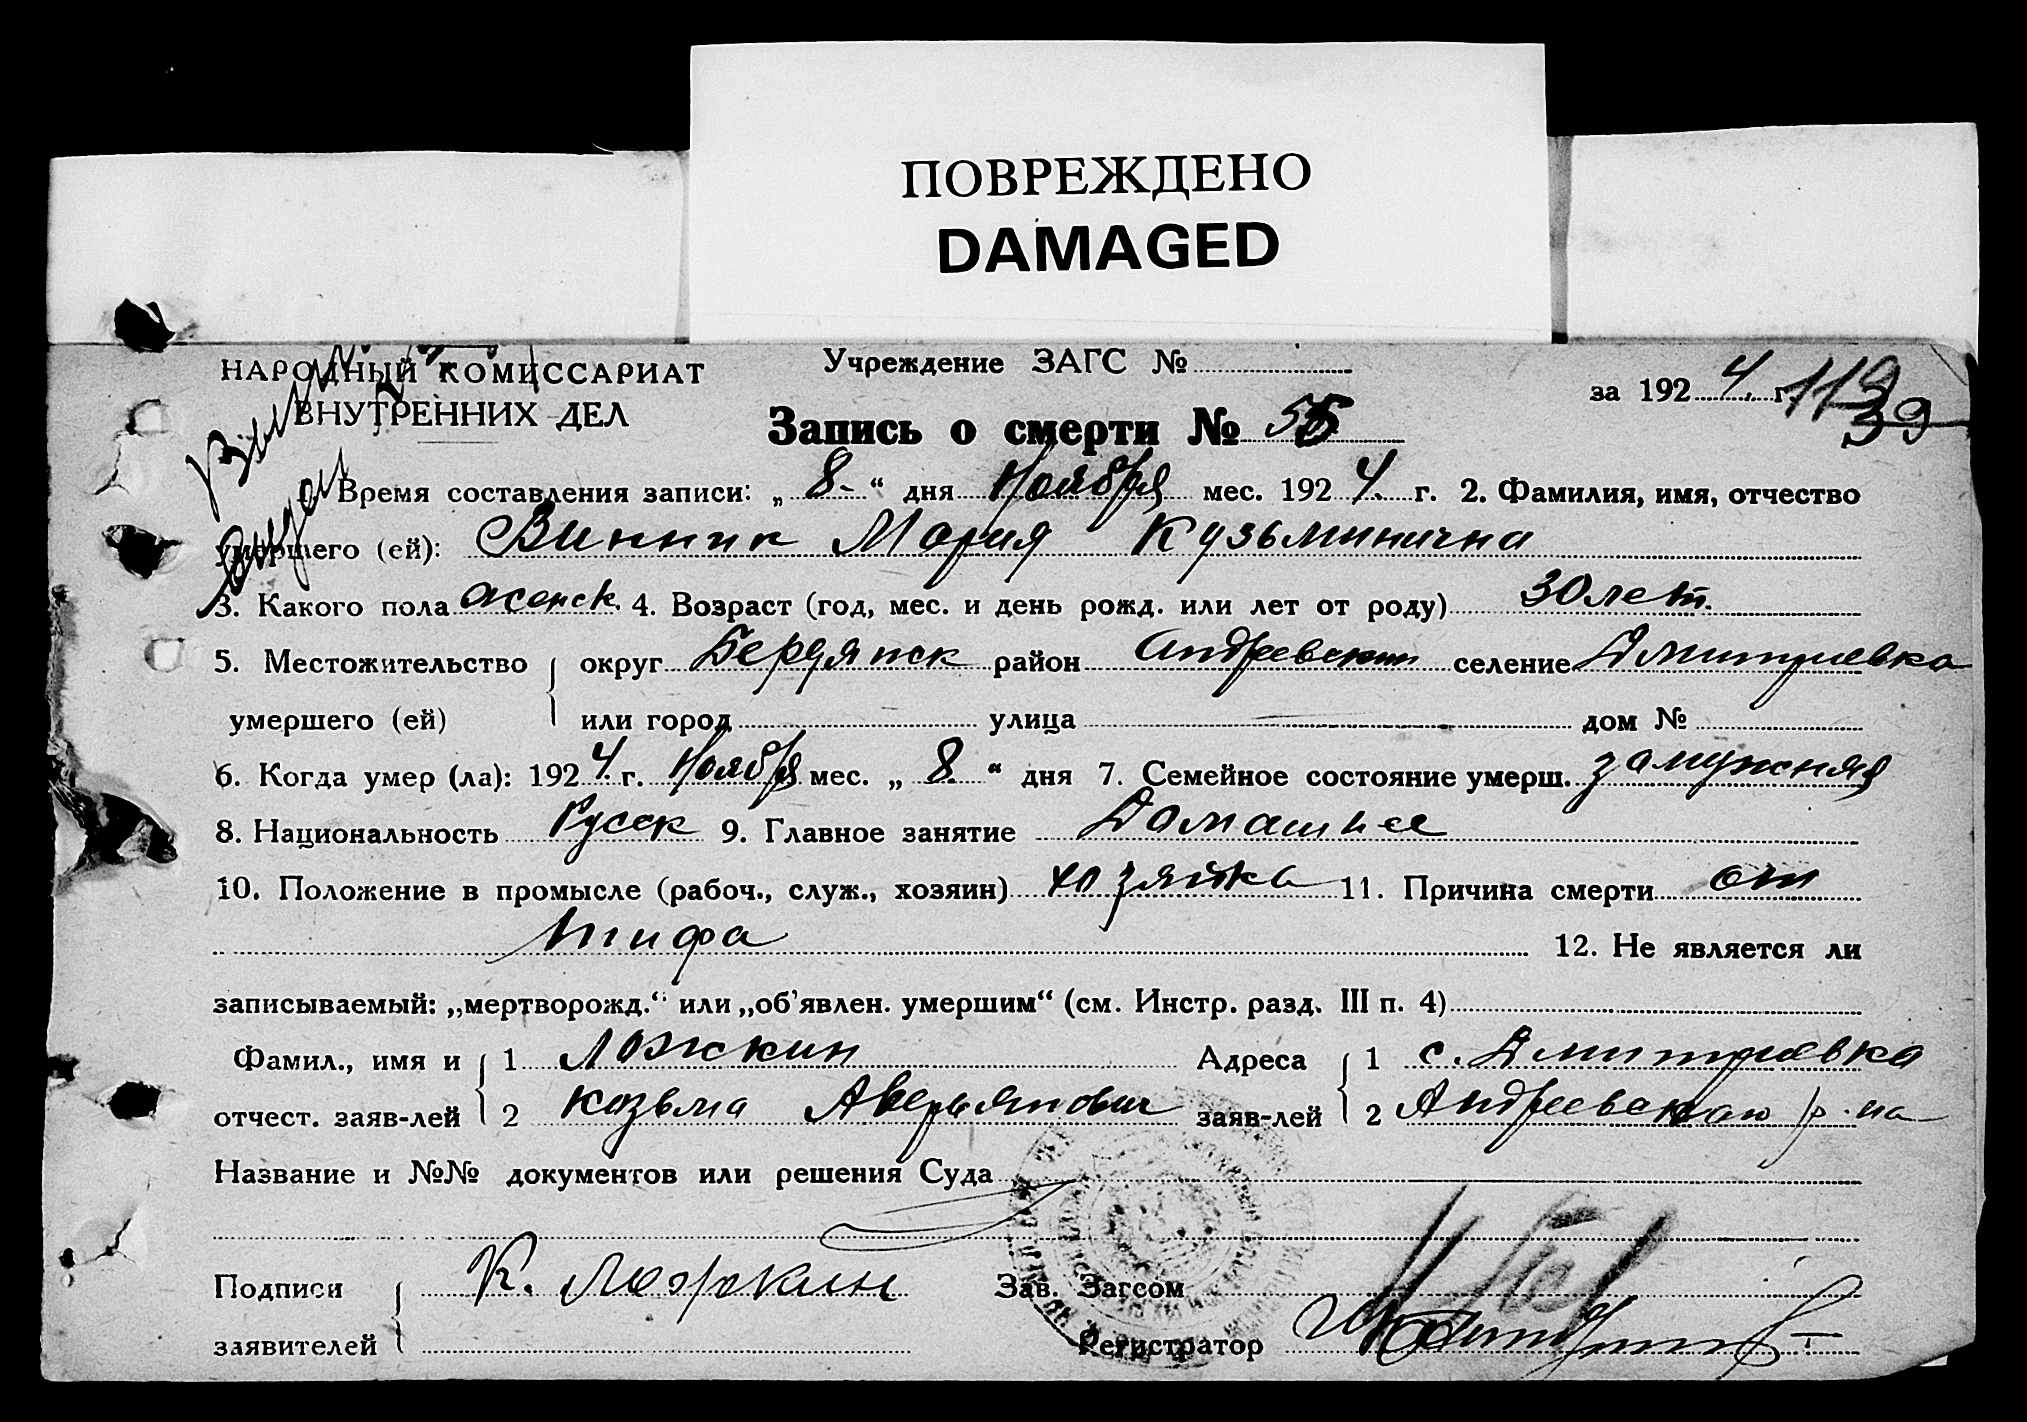 ПОВРЕЖДЕНО
DAMAGED
НАРОДНЫЙ КОМИССАРИАТ
ВНУТРЕННИХ ДЕЛ
Учреждение ЗАГС №
за 1924 г. 119
39
Запись о смерти № 55
1. Время составления записи: „8.“ дня Ноября мес. 1924. г. 2. Фамилия, имя, отчество
умершего (ей): Винник Мария Кузьминична
3. Какого пола женск. 4. Возраст (год, мес. и день рожд. или лет от роду) 30 лет.
5. Местожительство округ Бердянск район Андреевский селение Дмитриевка
умершего (ей) или город улица дом №
6. Когда умер (ла): 1924. г. Ноября мес. „8.“ дня 7. Семейное состояние умерш. замужняя
8. Национальность Русск 9. Главное занятие Домашнее
10. Положение в промысле (рабоч., служ., хозяин) хозяйка 11. Причина смерти от
тифа 12. Не является ли
записываемый: „мертворожд.“ или „об'явлен. умершим“ (см. Инстр. разд. III п. 4)
Фамил., имя и 1 Ложкин Адреса 1 с. Дмитриевка
отчест. заяв-лей 2 Козьма Аверьянович заяв-лей 2 Андреевского р-на
Название и №№ документов или решения Суда
Подписи К. Ложкин Зав. Загсом
заявителей Регистратор